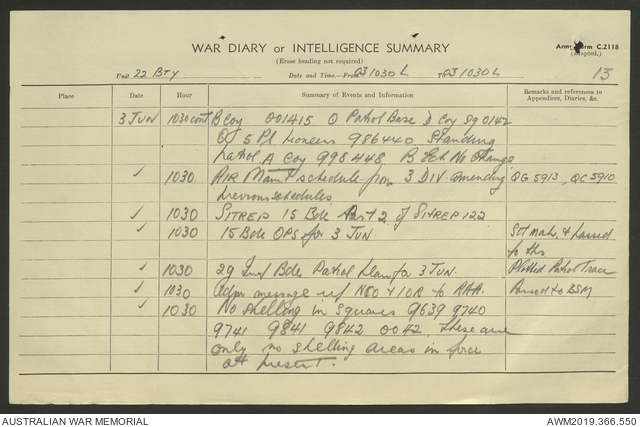 WAR DIARY or INTELLIGENCE SUMMARY
(Erase heading not required)
Army Form C.2118
(Adapted.)
Unit 22 BTY Date and Time—From 031030L To 031030L
13
Place Date Hour Summary of Events and Information Remarks and references to Appendices, Diaries, &c.
3 JUN 1030 cont B Coy 001415 O Patrol Base D Coy Sq 0142
5 Pl Pioneers 986440 Standing
Patrol A Coy 998448, B Ech No Change
✓ 1030 AIR Maint schedule from 3 DIV amending QG 5913, QC 5910
previous schedules
✓ 1030 SITREP 15 Bde Part 2 of SITREP 122
✓ 1030 15 Bde OPS for 3 JUN. & passed
to
✓ 1030 29 Inf Bde Patrol Plan for 3 JUN. Plotted Patrol Trace
✓ 1030 Adm message ref NCO & IOR to RAA. Passed to BSM
✓ 1030 No shelling in squares 9639 9740
9741 9841 9842 0042. These are
only no shelling areas in force
at present.
AUSTRALIAN WAR MEMORIAL AWM2019.366.550